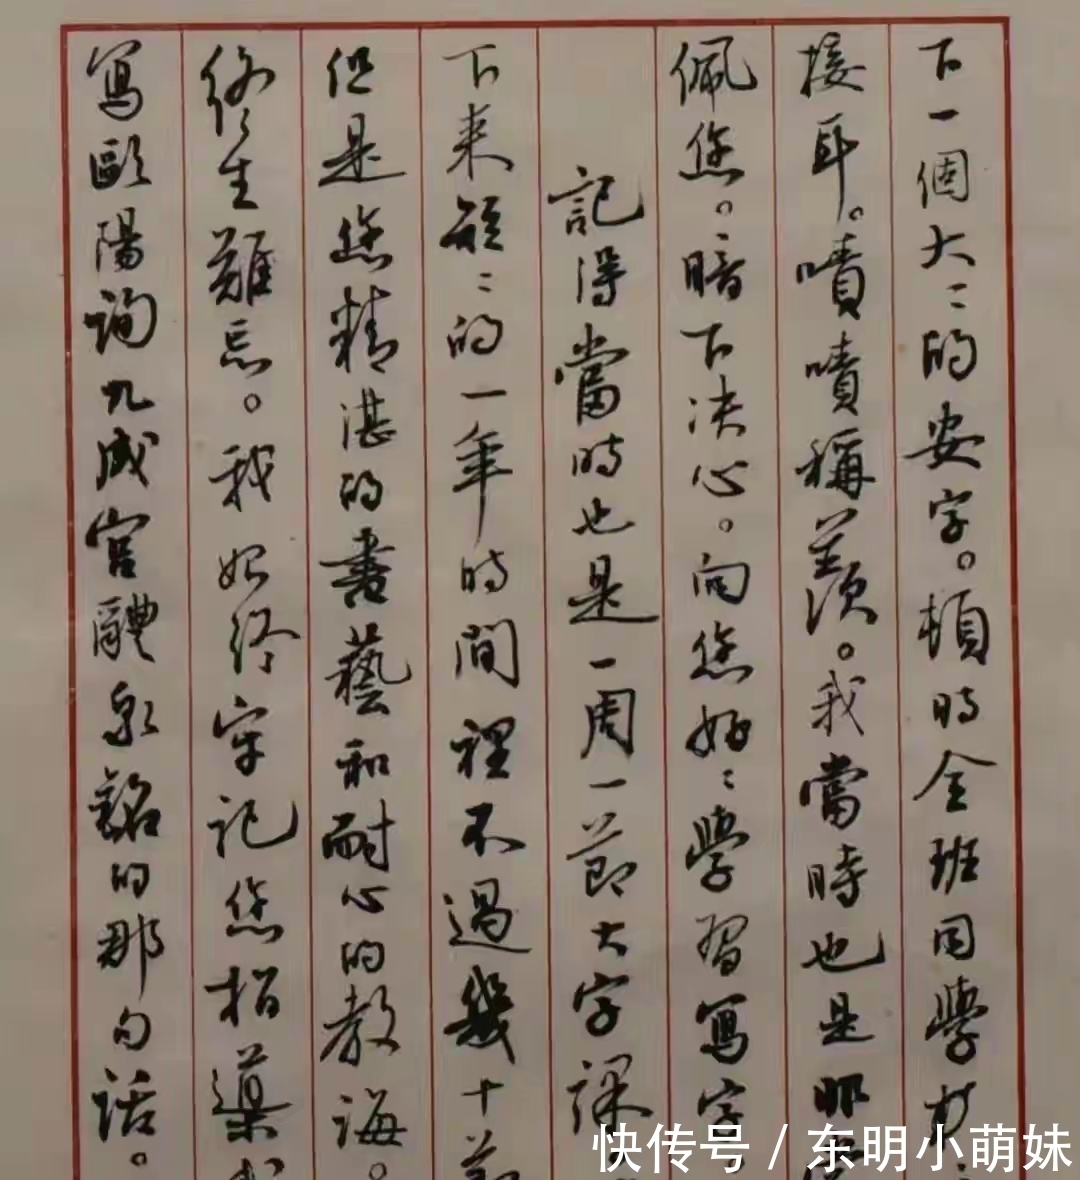 下一個大〻的安字。頓時全班同學交
接耳。嘖嘖稱羨。我當時也是那
佩您。暗下决心。向您好〻學習寫字。
記得當時也是一周一節大字課
下来短〻的一年時間裡不過幾十節
但是您精湛的書藝和耐心的教誨。
終生難忘。我始終牢記您指導我
寫歐陽詢九成宮醴泉銘的那句話。
快传号 / 东明小萌妹